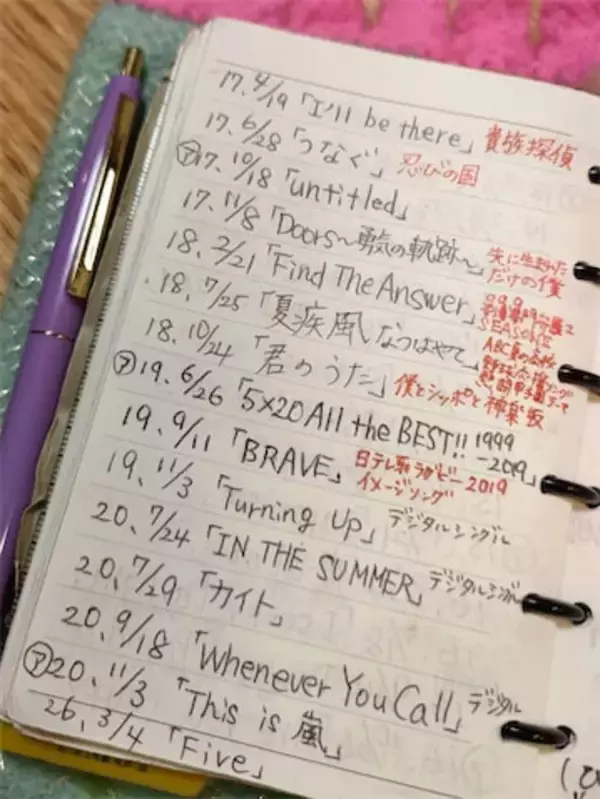 17. 4/19「I'll be there」貴族探偵
17. 6/28「つなぐ」忍びの国
㋐17. 10/18「untitled」
17. 11/8「Doors～勇気の軌跡～」先に生まれただけの僕
18. 2/21「Find The Answer」99.9 SEASONⅡ
18. 7/25「夏疾風 なつはやて」ABC
18. 10/24「君のうた」僕とシッポと神楽坂
㋐19. 6/26「5×20 All the BEST!! 1999-2019」
19. 9/11「BRAVE」日テレ系ラグビー2019イメージソング
19. 11/3「Turning Up」デジタルシングル
20. 7/24「IN THE SUMMER」デジタルシングル
20. 7/29「カイト」
20. 9/18「Whenever You Call」デジタル
㋐20. 11/3「This is 嵐」
26. 3/4「Five」